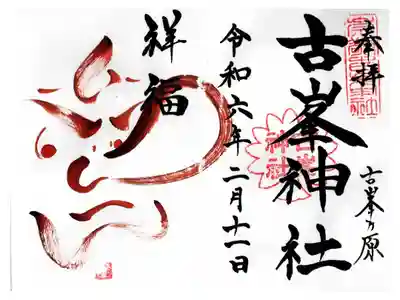 奉拝
古峯ヶ原
古峯神社
令和六年二月十一日
祥福